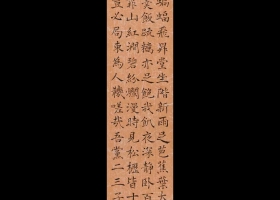 蝙蝠飛昇堂坐階新雨足芭蕉葉大
羹飯疏糲亦足飽我飢夜深靜臥百
霏山紅澗碧紛爛漫時見松櫪皆十
豈必局束為人鞿嗟哉吾黨二三子